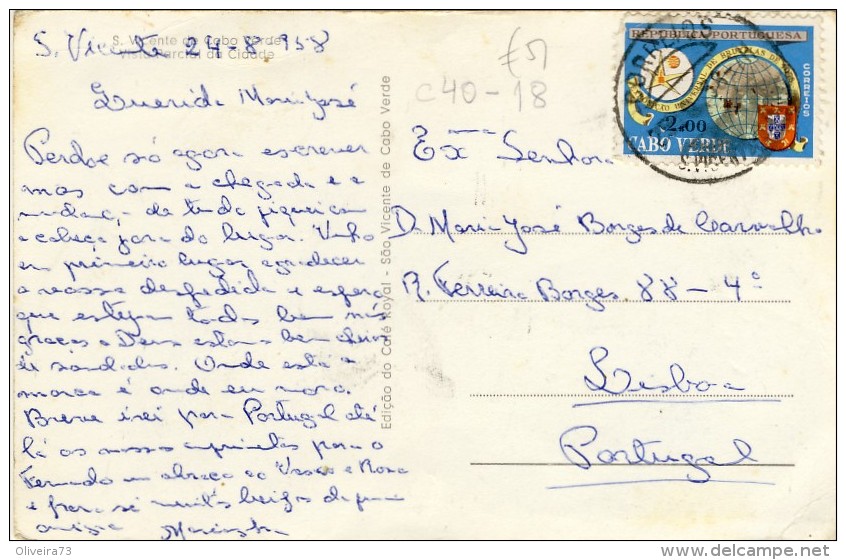 S. Vicente de Cabo Verde
Vista Parcial da Cidade
S. Vicente 24-8-958
Querida Maria José
Perdoe só agora escrever
mas com a chegada e a
mudança de tudo fiquei com
a cabeça fora do lugar. Venho
em primeiro lugar agradecer
a vossa despedida e espero
que estejam todos bem nós
graças a Deus estamos bem cheios
de saudades. Onde está a
marca é onde eu moro.
Breve irei para Portugal até
lá os nossos cumprimentos para o
Fernando um abraço ao Vasco e Rosa
e para si muitos beijos da
amiga
Edição do Café Royal - São Vicente de Cabo Verde
£5
C40-18
REPÚBLICA PORTUGUESA
CORREIOS
2.00
CABO VERDE
Exma Senhora
D. Maria José Borges de Carvalho
R. Ferreira Borges 88-4º
Lisboa
Portugal
Oliveira73
delcampe.net